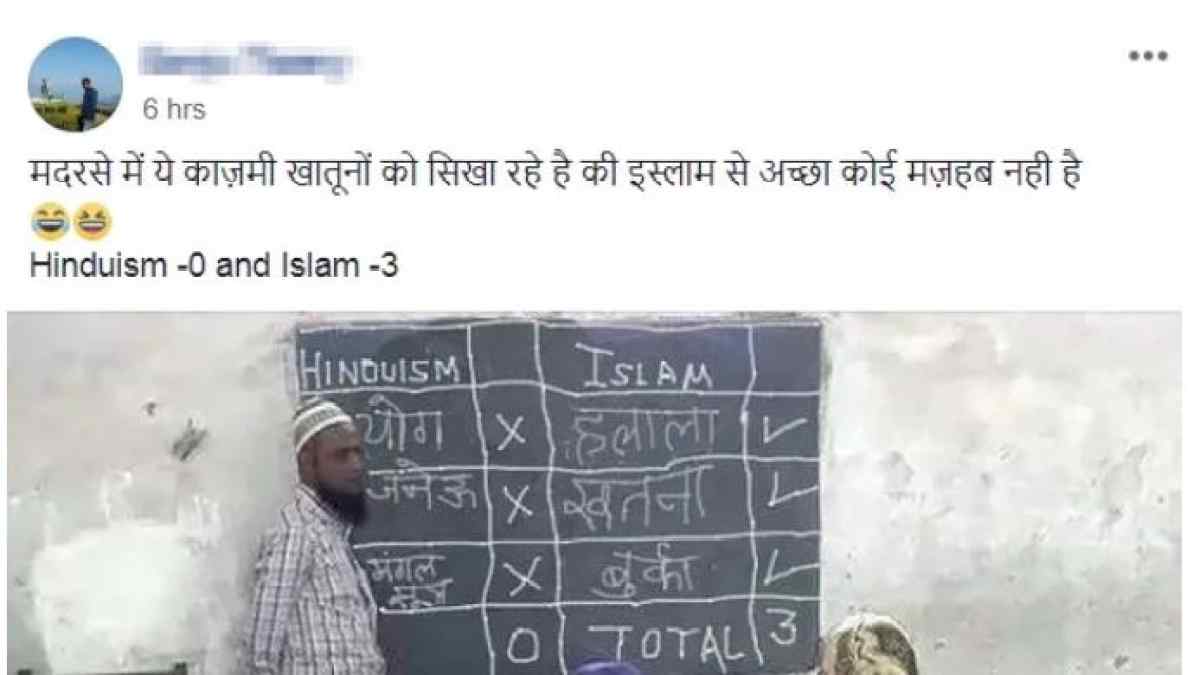 6 hrs
मदरसे में ये काज़मी खातूनों को सिखा रहे है की इस्लाम से अच्छा कोई मज़हब नही है
Hinduism -0 and Islam -3
HINDUISM ISLAM
योग X हलाला ✓
जनेऊ X खतना ✓
मंगल
सूत्र X बुर्का ✓
0 TOTAL 3